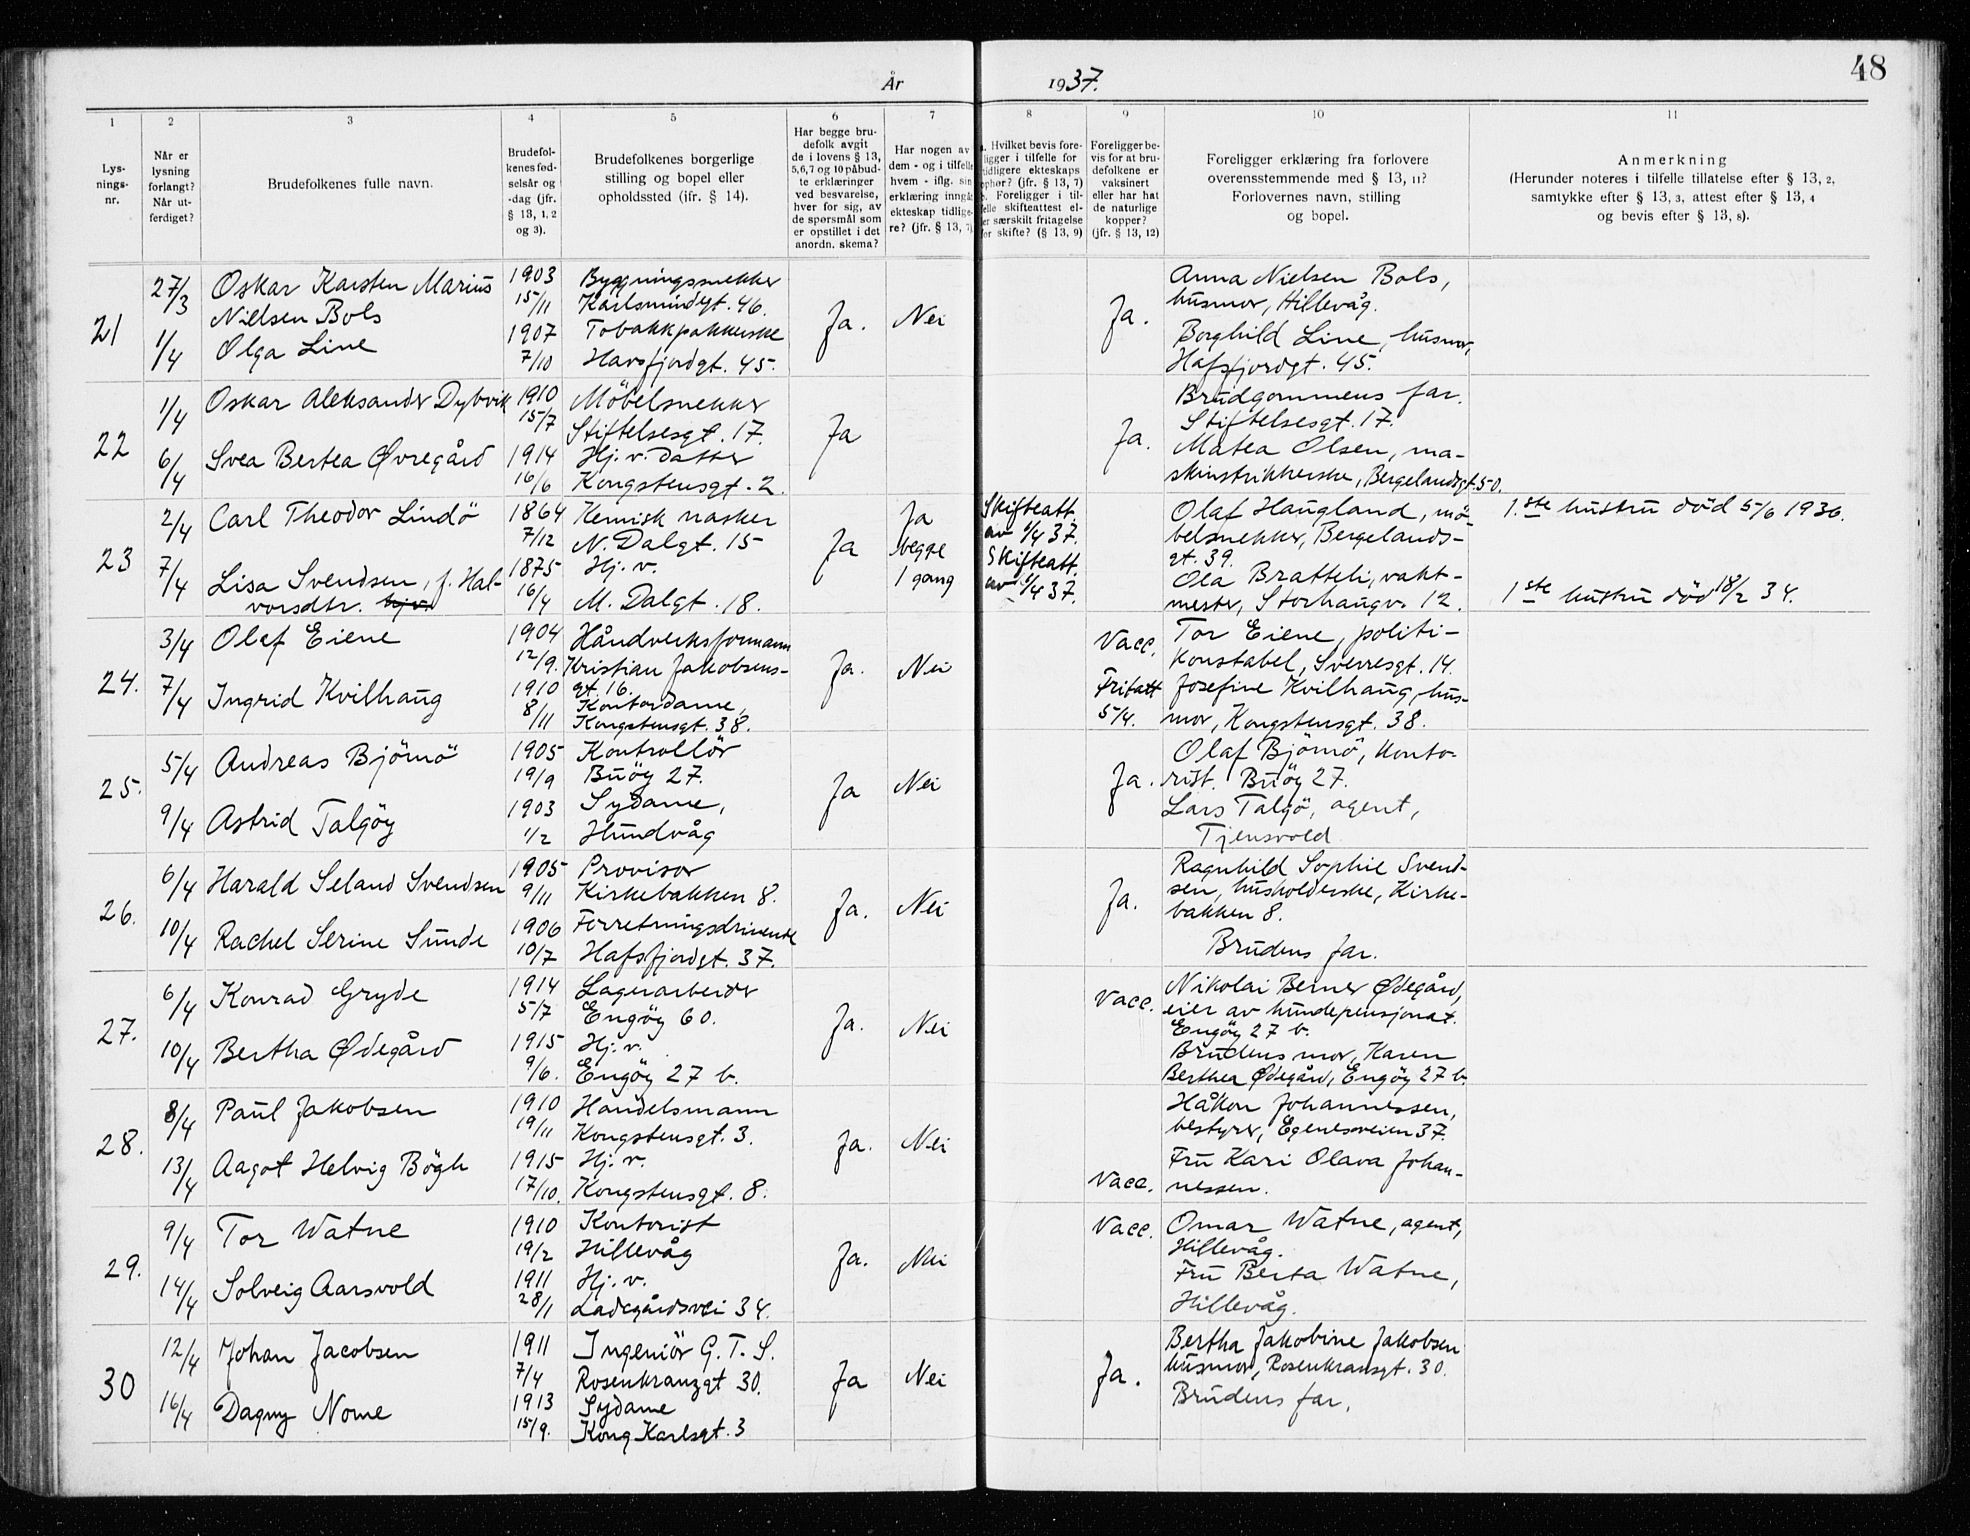 48
År 1937.
1 2 3 4 5 6 7 8 9 10 11
Lys-
nings-
nr.
Når er
lysning
forlangt?
Når ut-
ferdiget?
Brudefolkenes fulle navn.
Brudefol-
kenes fød-
selsår og
-dag (jfr.
§ 13, 1, 2
og 3).
Brudefolkenes borgerlige
stilling og bopel eller
opholdssted (ifr. § 14).
Har begge bru-
defolk avgit
de i lovens § 13,
5,6,7 og 10 påbud-
te erklæringer
ved besvarelse,
hver for sig, av
de spørsmål som
er opstillet i det
anordn. skema?
Har nogen av
dem - og i tilfelle
hvem - iflg. sin
erklæring inngåt
ekteskap tidlige-
re? (jfr. § 13, 7)
a. Hvilket bevis fore-
ligger i tilfelle for
tidligere ekteskaps
ophør? (jfr. § 13, 7)
b. Foreligger i til-
felle skifteattest el-
ler særskilt fritagelse
for skifte? (§ 13, 9)
Foreligger be-
vis for at bru-
defolkene er
vaksinert
eller har hat
de naturlige
kopper?
(jfr. § 13, 12)
Foreligger erklæring fra forlovere
overensstemmende med § 13, 11?
Forlovernes navn, stilling
og bopel.
Anmerkning
(Herunder noteres i tilfelle tillatelse efter § 13, 2,
samtykke efter § 13, 3, attest efter § 13, 4
og bevis efter § 13, 8).
21
27/3
1/4
Oskar Karsten Marius
Nielsen Bols
Olga Line
1903
15/11
1907
7/10
Bygningssnekker
Karlsmindegt. 46.
Tobakkpakkerske
Havsfjordgt. 45.
Ja.
Nei
Ja.
Anna Nielsen Bols,
husmor, Hillevåg.
Borghild Line, husmor,
Hafsfjordgt. 45.
22
1/4
6/4
Oskar Aleksander Dybvik
Svea Bertea Øvregård
1910
15/7
1914
16/6
Möbelsnekker
Stiftelsesgt. 17.
Hj. v. datter
Kongstensgt. 2.
Ja
Ja.
Brudgommens far.
Stiftelsesgt. 17.
Matea Olsen, ma-
skinstrikkerske, Bergelandsgt. 50.
23
2/4
7/4
Carl Theodor Lindö
Lisa Svendsen, f. Hal-
vorsdtr. hj.v.
1864
7/12
1875
16/4
Kemisk vasker
N. Dalgt. 15
Hj. v.
M. Dalgt. 18.
Ja
Ja
begge
1 gang
Skifteatt.
av 1/4 37.
Skifteatt.
av 1/4 37.
Olaf Haugland, mö-
belsnekker, Bergelands-
gt. 39.
Ola Bratteli, vakt-
mester, Storhaugv. 12.
1.ste hustru död 5/6 1936.
1ste hustru död 18/2 34.
24.
3/4
7/4
Olaf Eiene
Ingrid Kvilhaug
1904
12/9.
1910
8/11
Håndverksformann
Kristian Jakobsens-
gt. 16.
Kontordame,
Kongstensgt. 38.
Ja.
Nei
Vacc.
Fritatt
5/4.
Tor Eiene, politi-
konstabel, Sverresgt. 14.
Josefine Kvilhaug, hus-
mor, Kongstensgt. 38.
25.
5/4
9/4
Andreas Björnö
Astrid Talgöy
1905
19/9
1903
1/2
Kontrollör
Buöy 27.
Sydame,
Hundvåg
Ja
Nei
Ja.
Olaf Björnö, konto-
rist. Buöy 27.
Lars Talgö, agent,
Tjensvold
26.
6/4
10/4
Harald Seland Svendsen
Rachel Serine Sunde
1905
9/11
1906
10/7
Provisor
Kirkebakken 8.
Forretningsdrivende
Hafsfjordgt. 37.
Ja.
Nei
Ja.
Ragnhild Sophie Svend-
sen, husholderske, Kirke-
bakken 8.
Brudens far.
27.
6/4
10/4
Konrad Gryde
Bertha Ødegård
1914
5/7
1915
9/6.
Lagerarbeider
Engöy 60.
Hj. v.
Engöy 27 b.
Ja.
Nei
Vacc.
Nikolai Berner Ødegård,
eier av hundepensjonat.
Engöy 27 b.
Brudens mor, Karen
Berthea Ødegård, Engöy 27 b.
28.
8/4
13/4
Paul Jakobsen
Aagot Helvig Bögh
1910
19/11
1915
17/10.
Handelsmann
Kongstensgt. 3.
Hj. v.
Kongstensgt. 8.
Ja.
Nei
Vacc.
Håkon Johannessen,
bestyrer, Egenesveien 37.
Fru Kari Olava Johan-
nessen.
29.
9/4
14/4
Tor Watne
Solveig Aarsvold
1910
19/2
1911
28/1
Kontorist
Hillevåg
Hj. v.
Ladegårdsvei 34.
Ja.
Nei
Vacc.
Omar Watne, agent,
Hillevåg.
Fru Berta Watne,
Hillevåg.
30
12/4
16/4
Johan Jacobsen
Dagny Nome
1911
7/4
1913
15/9.
Ingeniör G. T. S.
Rosenkranzgt 30.
Sydame
Kong Karlsgt. 3
Ja
Nei
Ja.
Bertha Jakobine Jakobsen
husmor, Rosenkransgt. 30.
Brudens far.